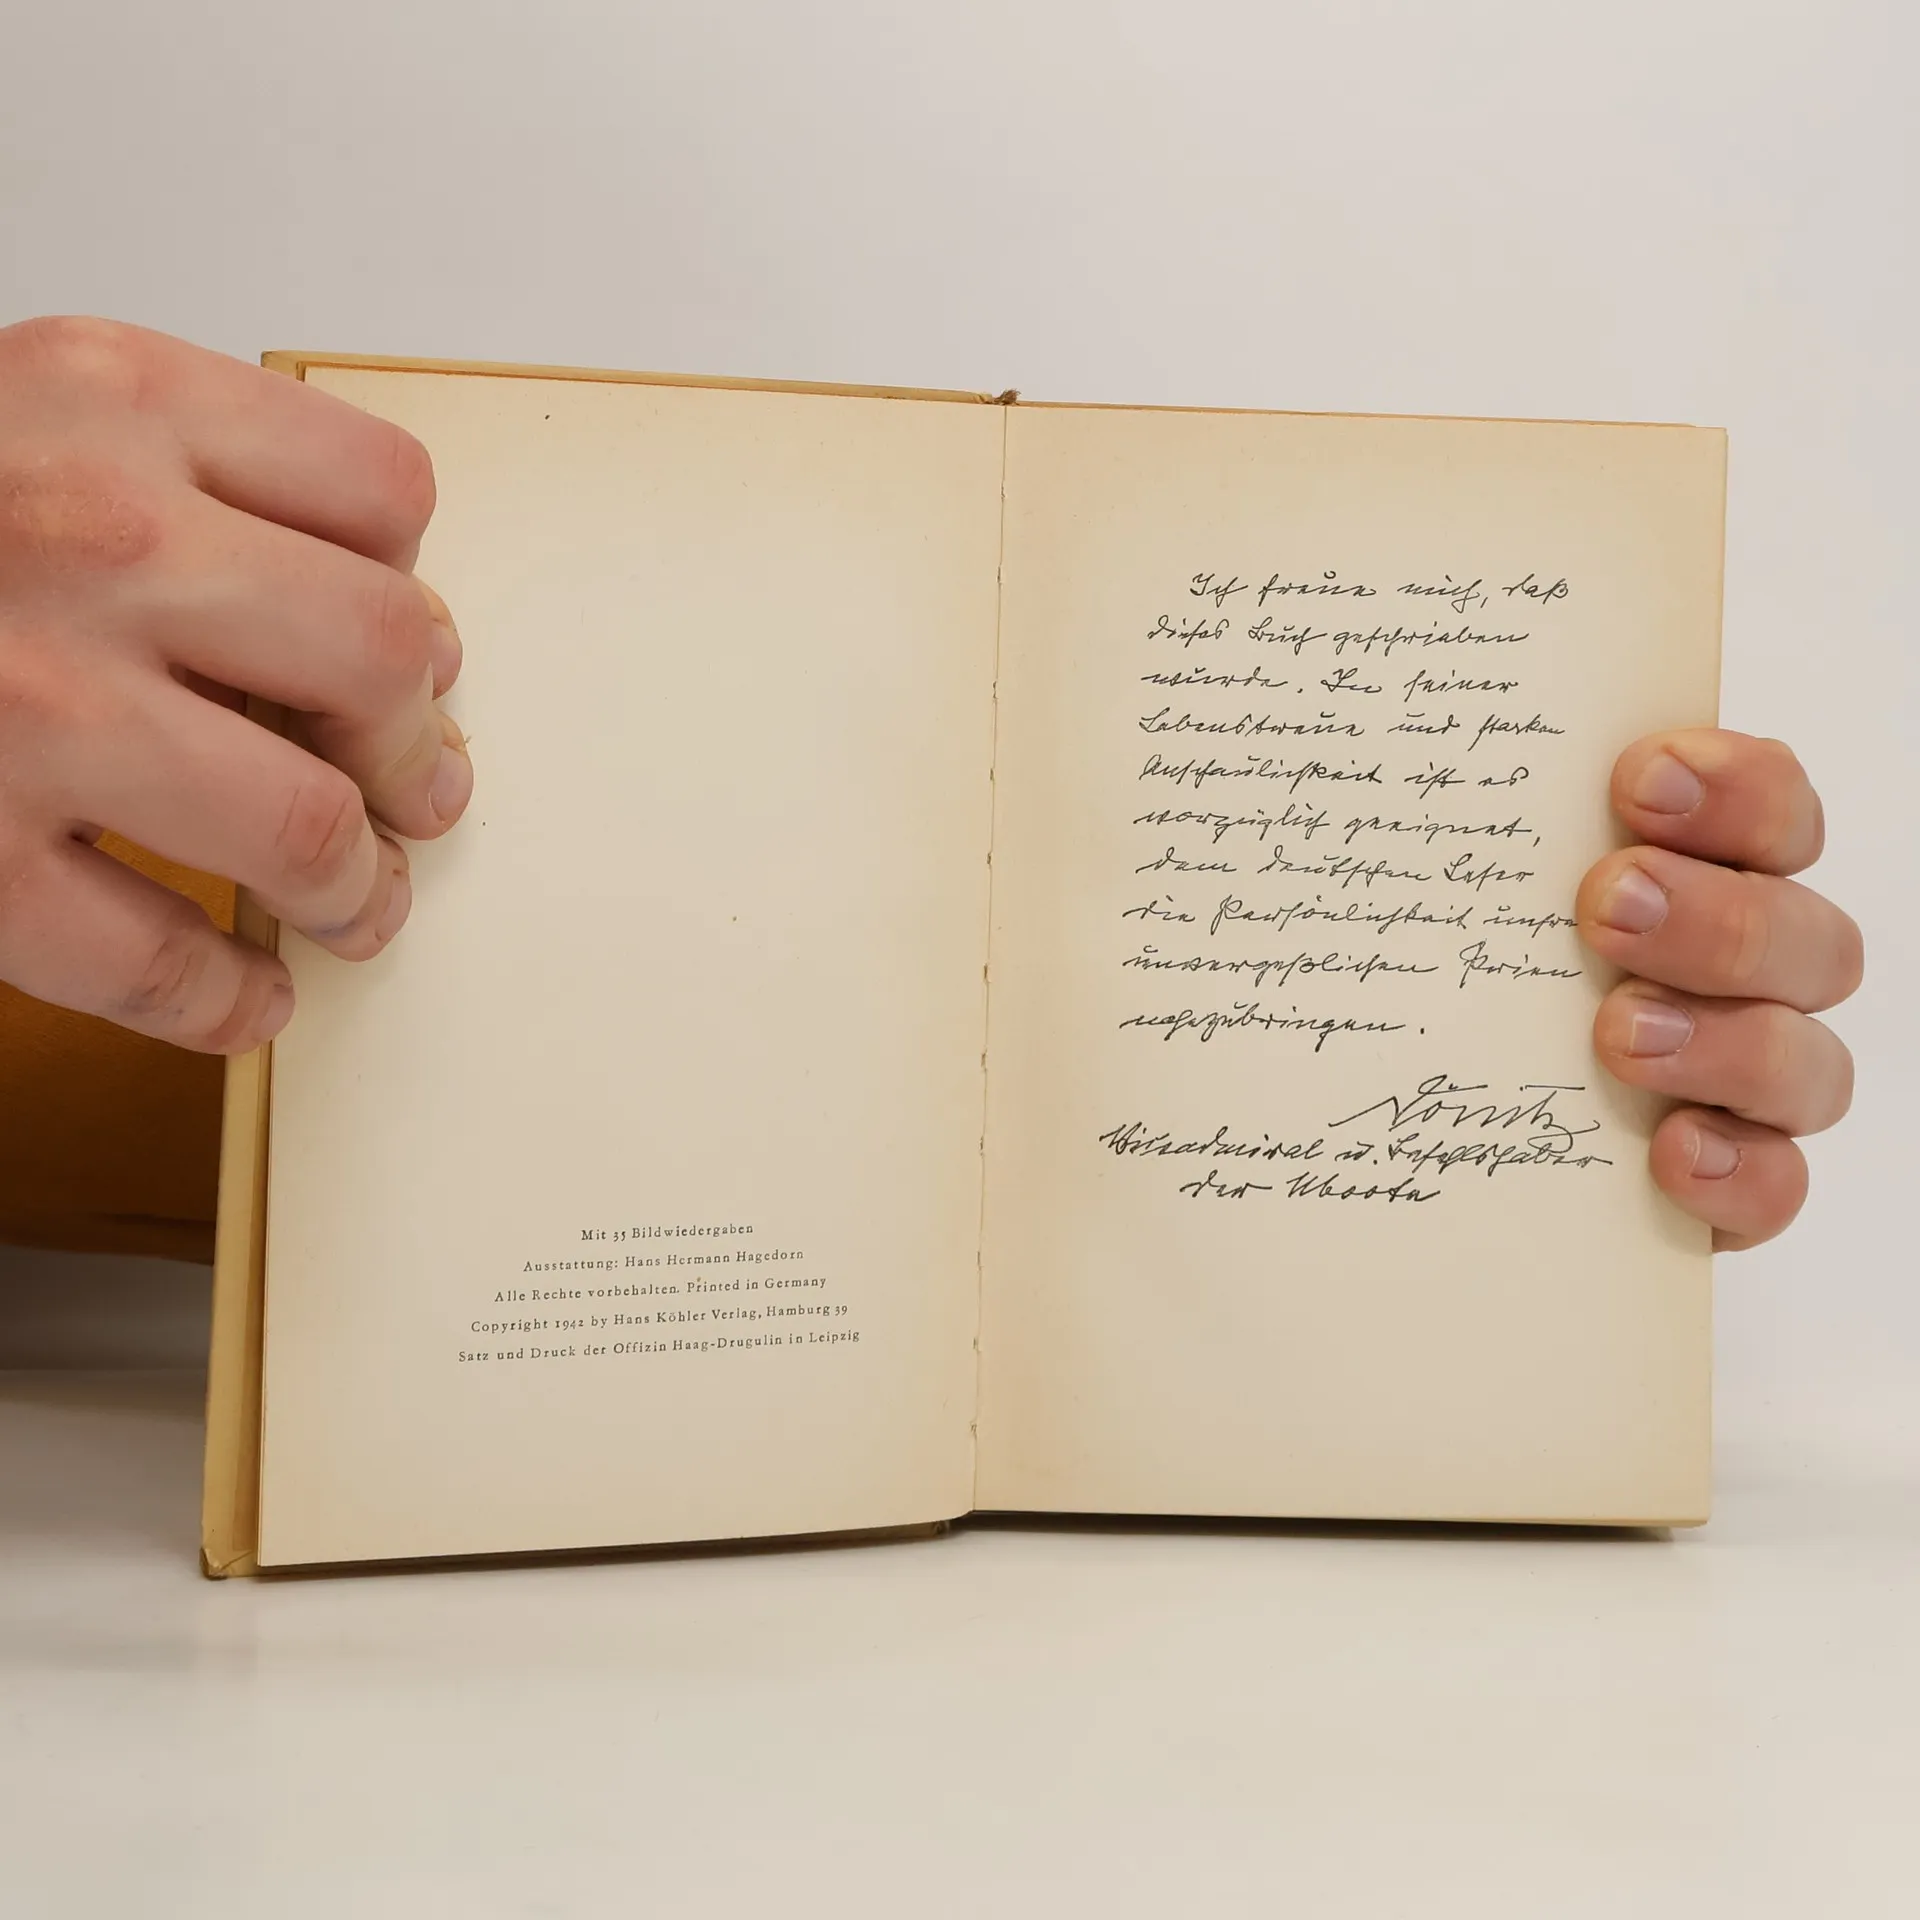 Mit 35 Bildwiedergaben
Ausstattung: Hans Hermann Hagedorn
Alle Rechte vorbehalten. Printed in Germany
Copyright 1942 by Hans Köhler Verlag, Hamburg 39
Satz und Druck der Offizin Haag-Drugulin in Leipzig
Ich freue mich, daß
dieses Buch geschrieben
wurde. In seiner
Lebenstreue und starken
Anschaulichkeit ist es
vorzüglich geeignet,
dem deutschen Leser
die Persönlichkeit unsre
unvergeßlichen Prien
nahezubringen.
Dönitz
Vizeadmiral u. Befehlshaber
der Uboote